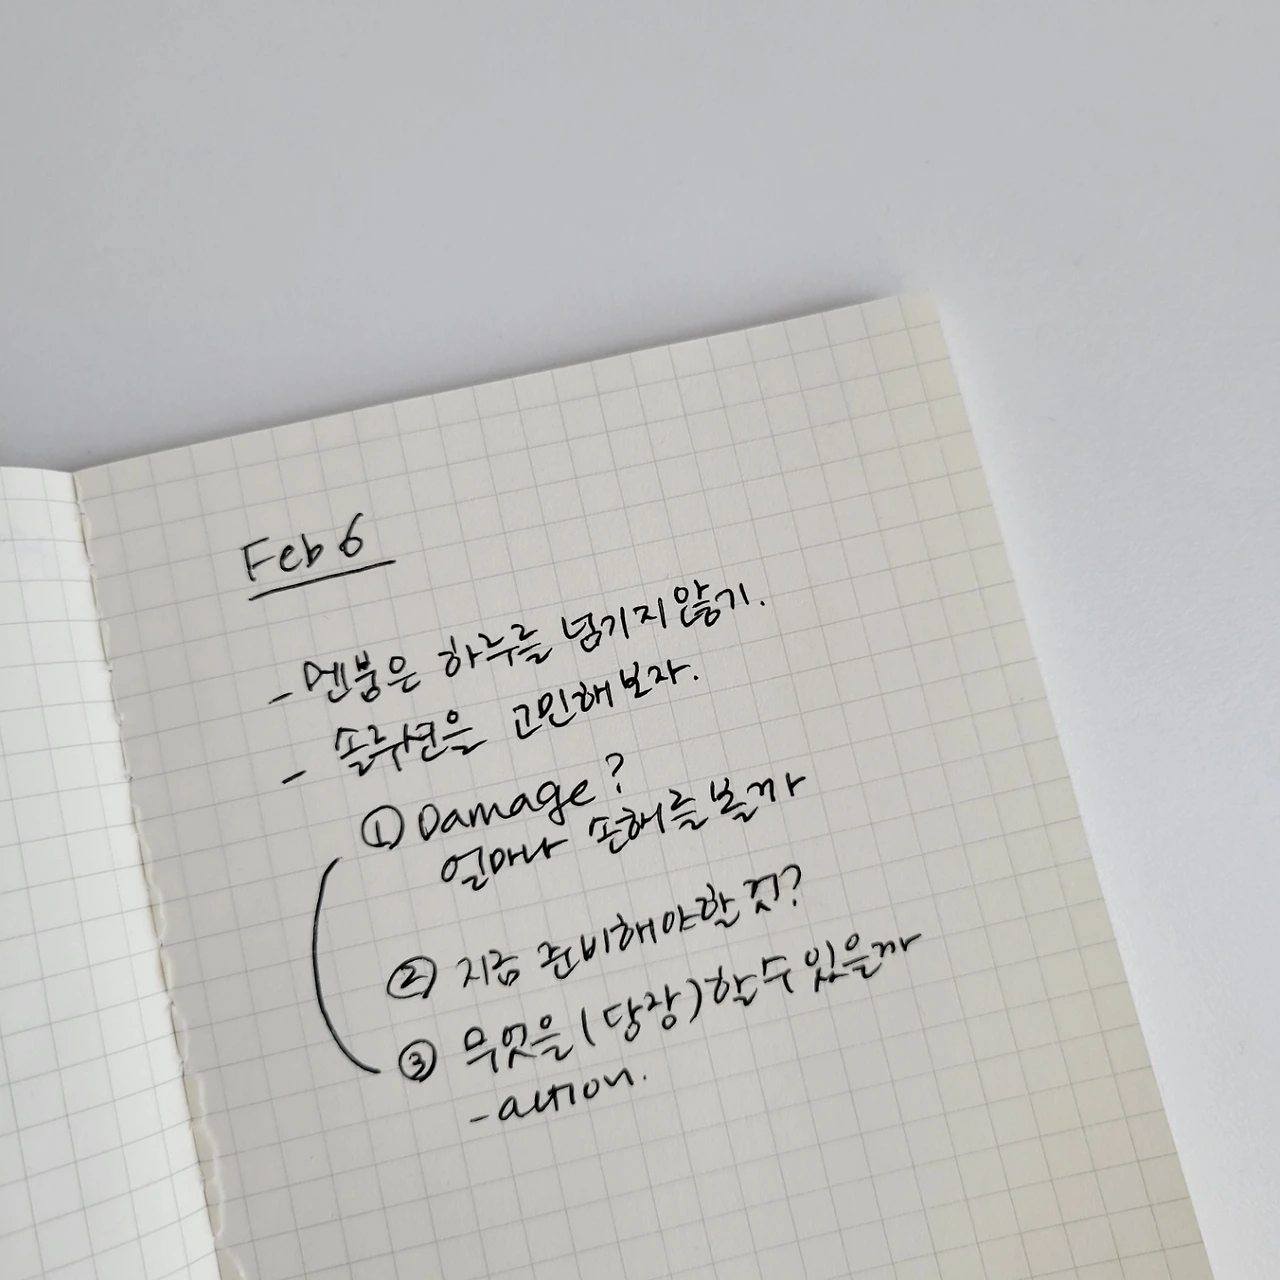 Feb 6
- 멘붕은 하루를 넘기지 않기.
- 솔루션을 고민해보자.
① Damage?
얼마나 손해를 볼까
② 지금 준비해야할 것?
③ 무엇을 (당장) 할 수 있을까
- action.